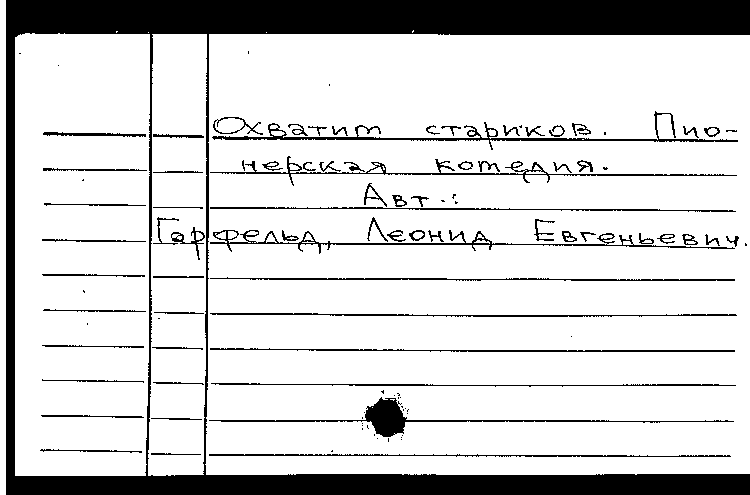 Охватим стариков. Пио-
нерская комедия.
Авт.:
Гарфельд, Леонид Евгеньевич.